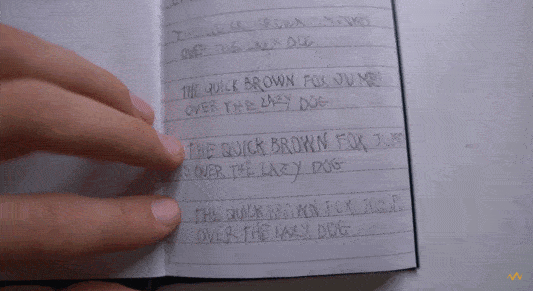 QUICK BROWN
OVER THE LAZY DOG
THE QUICK BROWN FOX JUMPS
OVER THE LAZY DOG
THE QUICK BROWN FOX
OVER THE LAZY DOG
THE QUICK BROWN FOX
OVER THE LAZY DOG